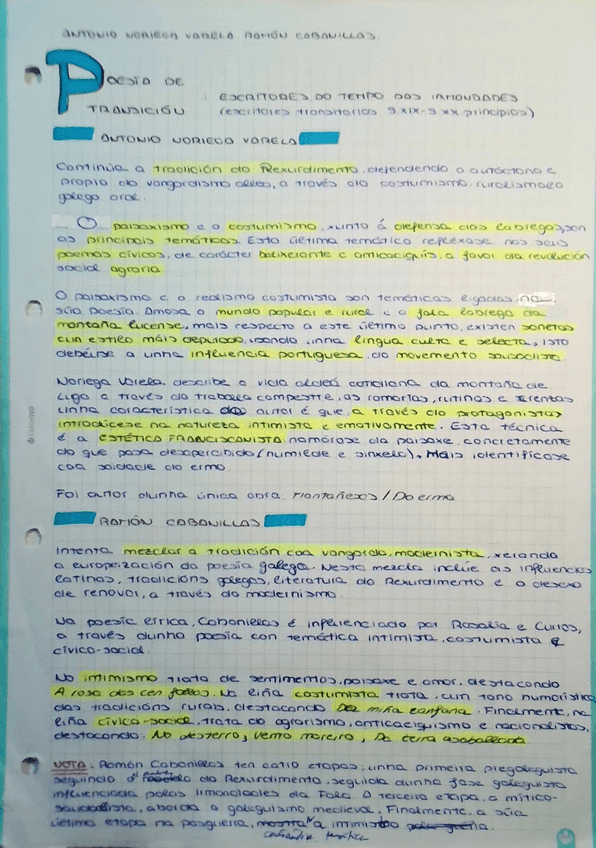 ANTONIO NORIEGA VARELA RAMÓN CABANILLAS.
POESÍA DE
TRANSICIÓN
ESCRITORES DO TEMPO DAS IRMANDADES
(escritores transitorios S.XIX-S.XX principios)
ANTONIO NORIEGA VARELA
Continúa a tradición do Rexurdimento, defendendo o autóctono e
propio do vangardismo alleo, a través do costumismo, ruralismo e
galego oral.
O paisaxismo e o costumismo, xunto á defensa dos labregos, son
as principais temáticas. Esta última temática refléxase nos seus
poemas cívicos, de carácter belixerante e anticaciquís, a favor da revolución
social agraria.
O paisaxismo e o realismo costumista son temáticas ligadas na
súa poesía. Amosa o mundo popular e rural e a fala labrega da
montaña lucense, mais respecto a este último punto, existen sonetos
cun estilo máis depurado, usando unha lingua culta e selecta, isto
débese a unha influencia portuguesa, do movemento saudosista.
Noriega Varela, describe a vida aldeá cotidiana da montaña de
Lugo a través do traballo campestre, as romarías, rutinas e
unha característica do autor é que, a través do protagonista,
introdúcese na natureza intimista e emotivamente. Esta técnica
é a ESTÉTICA FRANCISCANISTA: namórase da paisaxe, concretamente
do que pasa desapercibido (humilde e sinxelo). Máis identifícase
coa saidade do ermo.
Foi autor dunha única obra: Montañesas / Do ermo
RAMÓN CABANILLAS
Intenta mezclar a tradición coa vangarda, modernista, xerando
a europeización da poesía galega. Nesta mezcla inclúe as influencias
latinas, tradicións galegas, literatura do Rexurdimento e o desexo
de renovar, a través do modernismo.
Na poesía lírica, Cabanillas é influenciado por Rosalía e Curros,
a través dunha poesía con temática intimista, costumista e
cívico-social.
No intimismo trata de sentimentos, paisaxe e amor, destacando
A rosa das cen follas. Na liña costumista trata, cun tono humorístico,
das tradicións rurais, destacando Da miña zanfona. Finalmente, na
liña cívico-social, trata do agrarismo, anticaciquismo e nacionalistas,
destacando: No desterro, Vento mareiro, Da terra asoballada
NOTA: Ramón Cabanillas ten catro etapas, unha primeira pregaleguista
seguindo do Rexurdimento, seguida dunha fase galeguista
influenciada polas Irmandades da Fala. A terceira etapa, a mítico-
saudosista, aborda o galeguismo medieval. Finalmente, a súa
última etapa na posguerra, mostra a intimista